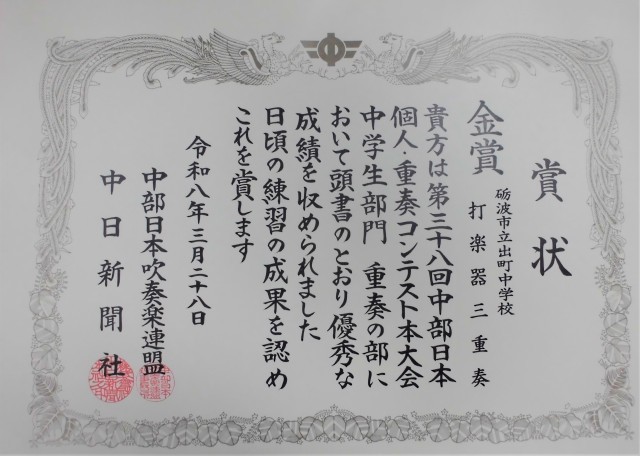 賞状
金賞
砺波市立出町中学校
打楽器三重奏
貴方は第三十八回中部日本
個人・重奏コンテスト本大会
中学生部門 重奏の部に
おいて頭書のとおり優秀な
成績を収められました
日頃の練習の成果を認め
これを賞します
令和八年三月二十八日
中部日本吹奏楽連盟
中日新聞社